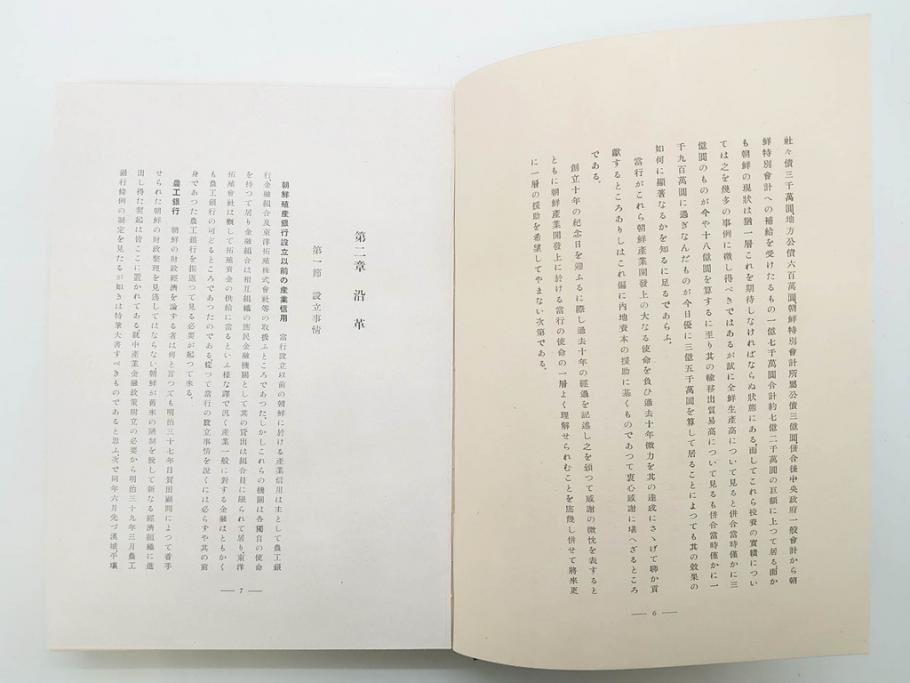 社々債三千萬圓、地方公債六百萬圓、朝鮮特別會計所屬公債三億圓、併合後中央政府一般會計から朝
鮮特別會計への補給を受けたるもの一億七千萬圓合計約七億二千萬圓の巨額に上つて居る。而か
も朝鮮の現狀は猶一層これを期待しなければならぬ狀態にある。而してこれら投資の實績につい
ては之を幾多の事例に徴し得べきではあるが試に全鮮生產高について見ると併合當時僅かに三
億圓のものが今や十八億圓を算するに至り其の輸移出貿易高について見るも併合當時僅かに一
千九百萬圓に過ぎなんだものが今日優に三億五千萬圓を算して居ることによつても其の效果の
如何に顯著なるかを知るに足るであらふ。
當行がこれら朝鮮產業開發上の大なる使命を負ひ過去十年微力を其の達成にさゝげて聊か貢
獻するところありしはこれ偏に內地資本の援助に基くものであつて衷心感謝に堪へざるところ
である。
創立十年の紀念日を迎ふるに際し過去十年の經過を記述し之を頒つて感謝の微忱を表すると
ともに朝鮮產業開發上に於ける當行の使命の一層よく理解せられむことを庶幾し併せて將來更
に一層の援助を希望してやまない次第である。
— 6 —
第二章 沿革
第一節 設立事情
朝鮮殖產銀行設立以前の產業信用 當行設立以前の朝鮮に於ける產業信用は主として農工銀
行、金融組合及東洋拓殖株式會社等の取扱ふところであつた。しかしこれらの機關は各獨自の使命
を持つて居り金融組合は相互組織の庶民金融機關として其の貸出は組合員に限られて居り、東洋
拓殖會社は概して拓殖資金の供給に當るといふ樣な譯で汎く產業一般に對する金融はともかく
も農工銀行の司どるところであつたのである。從つて當行の設立事情を說くには必らずや其の前
身であつた農工銀行を振返つて見る必要が起つて來る。
農工銀行 朝鮮の財政經濟を論ずる者は何と言つても明治三十七年目賀田顧問によつて着手
せられた朝鮮の財政整理を見逃してはならない。朝鮮が舊來の陋制を脫して新なる經濟組織に進
出し得た礎は皆こゝに置かれてある。就中產業金融政策樹立の必要から明治三十九年三月農工
銀行條例の制定を見たるが如きは特筆大書すべきものであると思ふ。次で同年六月先づ漢城、平壤
— 7 —